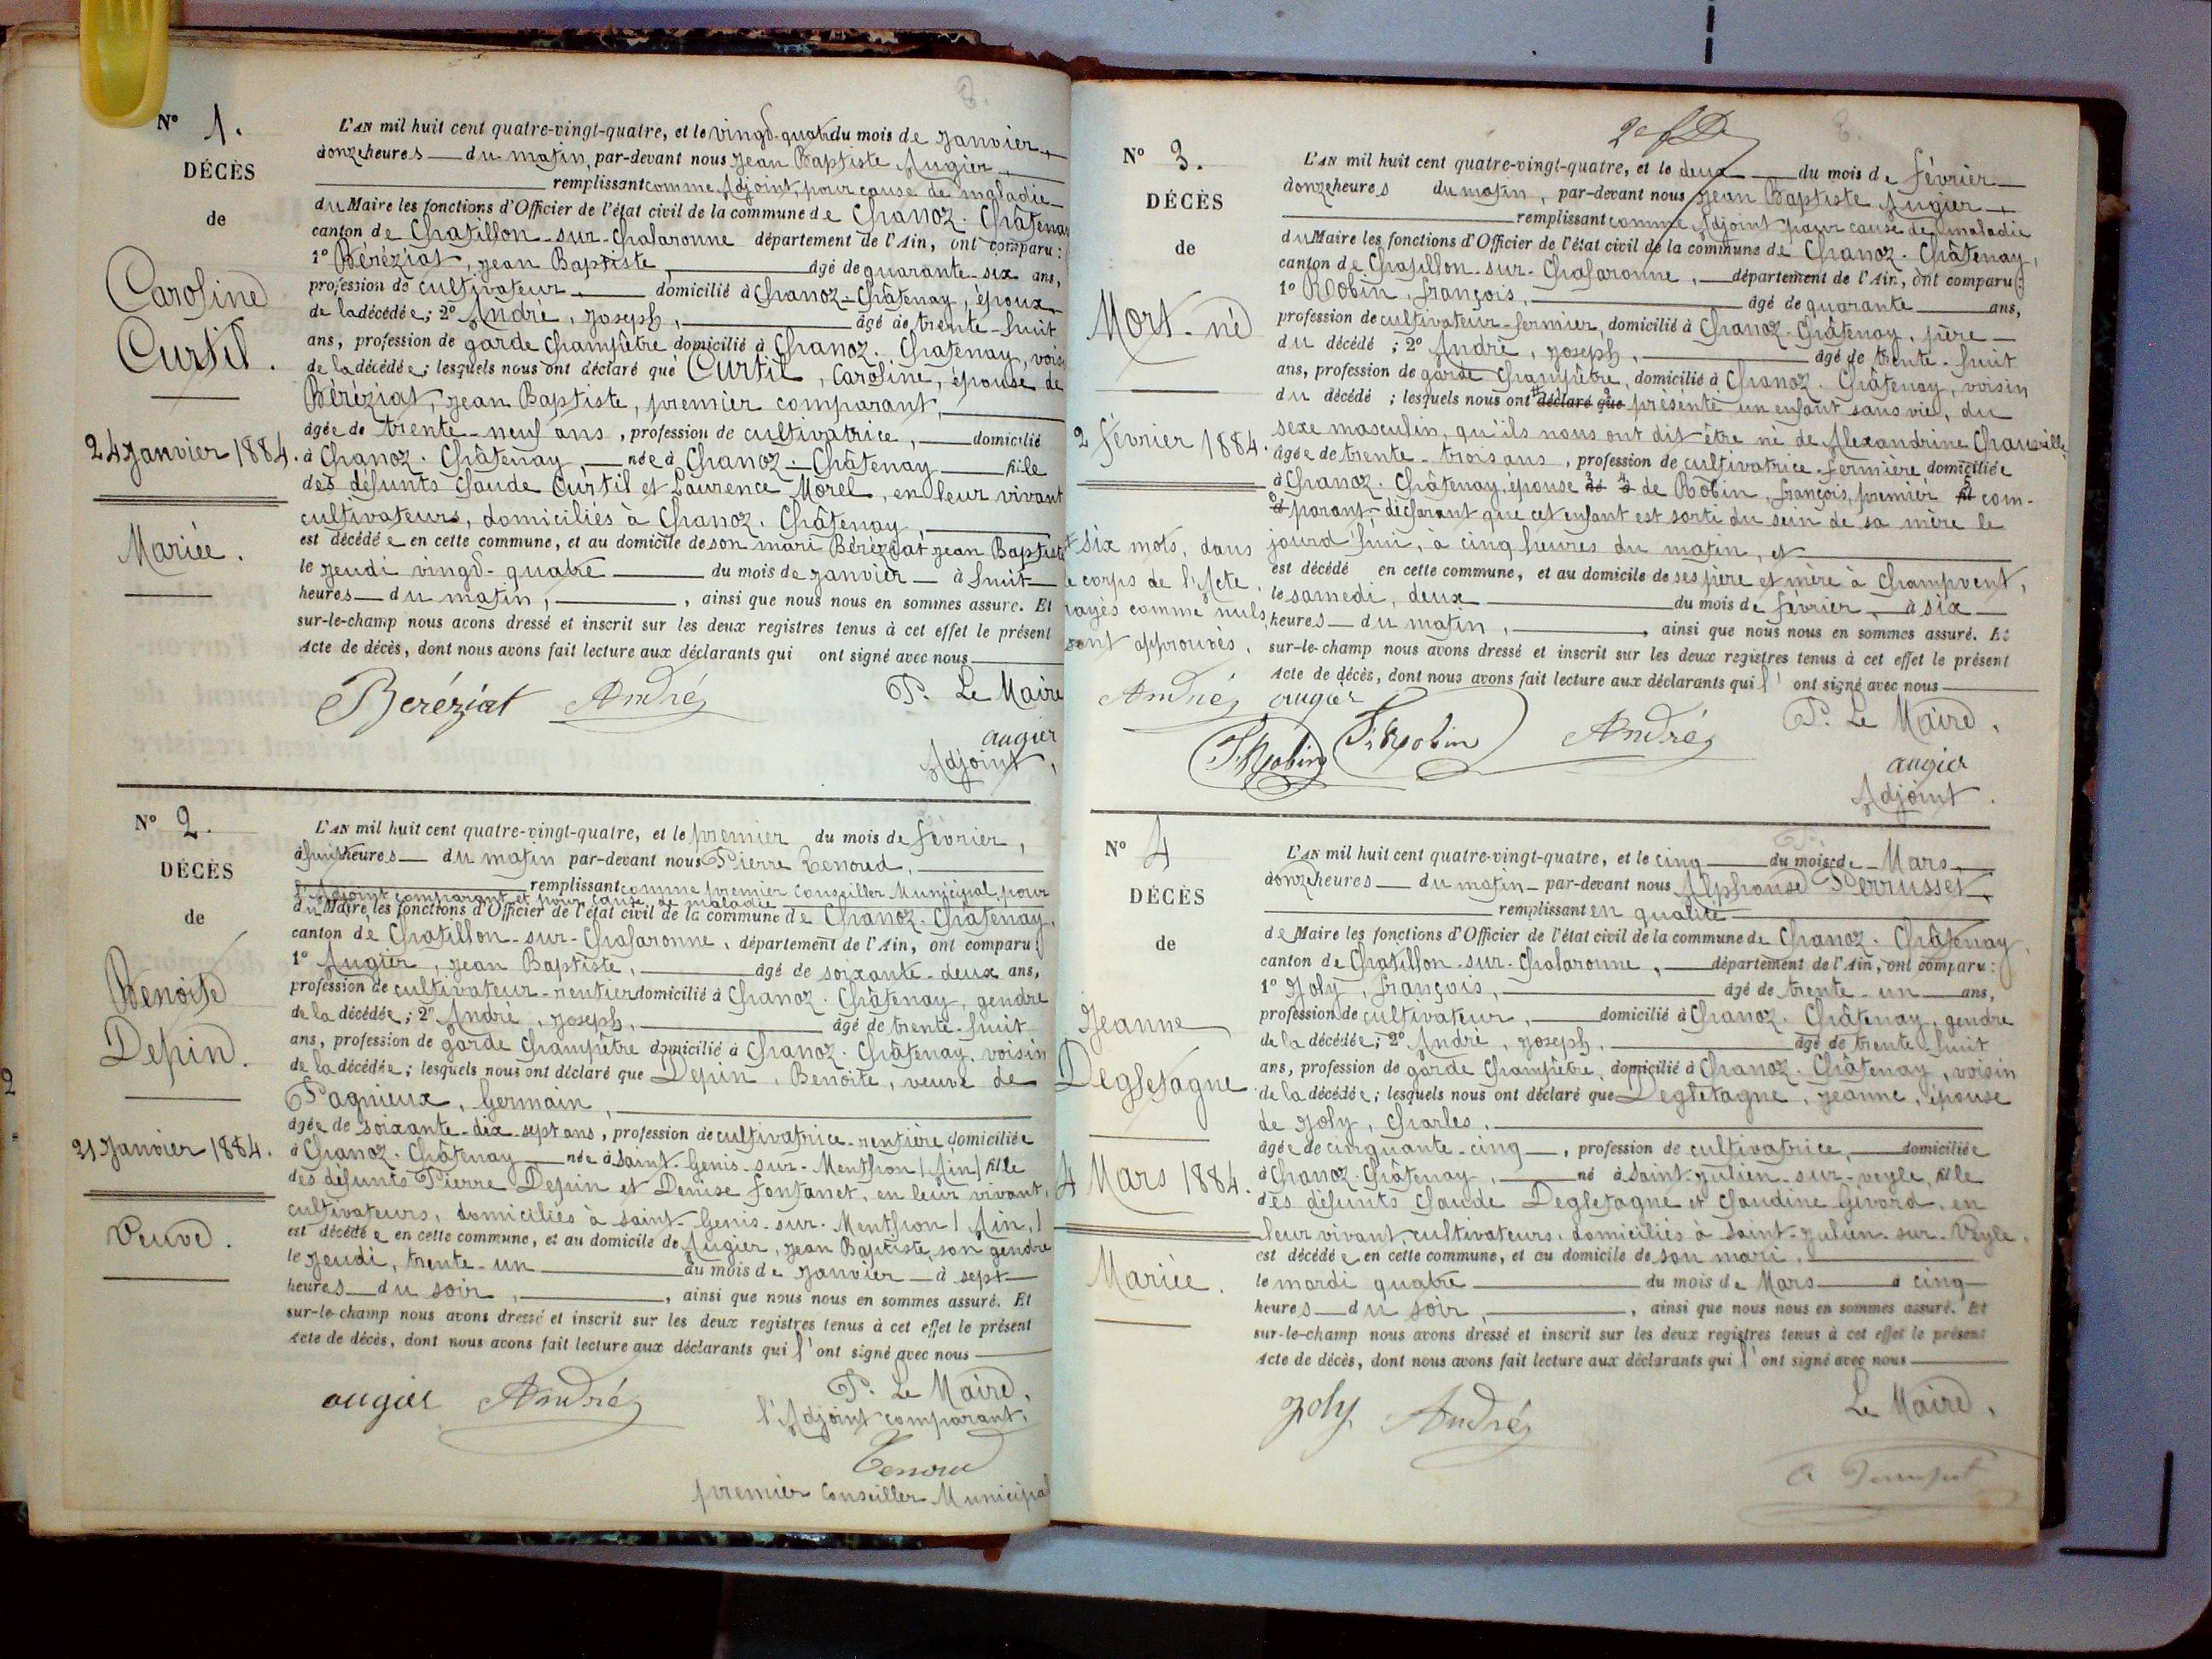 N° 1.
DÉCÈS
de
Caroline
Curtil.
24 Janvier 1884.
Mariée.
L'AN mil huit cent quatre-vingt-quatre, et le vingt-quatre du mois de Janvier
à onze heures du matin, par-devant nous Jean Baptiste Augier
remplissant comme Adjoint, pour cause de maladie
du Maire les fonctions d'Officier de l'état civil de la commune de Chanoz-Châtenay
canton de Chatillon-sur-Chalaronne département de l'Ain, ont comparu :
1° Béréziat, Jean Baptiste, âgé de quarante-six ans,
profession de cultivateur, domicilié à Chanoz-Châtenay, époux
de la décédée ; 2° André, Joseph, âgé de trente-huit
ans, profession de garde champêtre domicilié à Chanoz-Chatenay, vois
de la décédée ; lesquels nous ont déclaré que Curtil, Caroline, épouse de
Béréziat, Jean Baptiste, premier comparant,
âgée de trente-neuf ans, profession de cultivatrice, domicilié
à Chanoz-Châtenay, née à Chanoz-Châtenay fille
des défunts Claude Curtil et Laurence Morel, en leur vivant
cultivateurs, domiciliés à Chanoz-Châtenay,
est décédée en cette commune, et au domicile de son mari Béréziat Jean Baptiste
le jeudi vingt-quatre du mois de Janvier à huit
heures du matin, , ainsi que nous nous en sommes assuré. Et
sur-le-champ nous avons dressé et inscrit sur les deux registres tenus à cet effet le présent
Acte de décès, dont nous avons fait lecture aux déclarants qui ont signé avec nous
Beréziat André P. Le Maire
augier
Adjoint,
N° 2.
DÉCÈS
de
Benoite
Depin.
31 Janvier 1884.
Veuve.
L'AN mil huit cent quatre-vingt-quatre, et le premier du mois de février,
à huit heures du matin par-devant nous Pierre Tenoud,
remplissant comme premier Conseiller Municipal pour
l'Adjoint comparant et pour cause de maladie
du Maire, les fonctions d'Officier de l'état civil de la commune de Chanoz-Châtenay,
canton de Chatillon-sur-Chalaronne, département de l'Ain, ont comparu :
1° Augier, Jean Baptiste, âgé de soixante-deux ans,
profession de cultivateur-rentier domicilié à Chanoz-Châtenay, gendre
de la décédée ; 2° André, Joseph, âgé de trente-huit
ans, profession de garde champêtre domicilié à Chanoz-Châtenay, voisin
de la décédée ; lesquels nous ont déclaré que Depin, Benoite, veuve de
Pagnieux, Germain,
âgée de soixante-dix-sept ans, profession de cultivatrice-rentière domiciliée
à Chanoz-Châtenay née à Saint-Genis-sur-Menthon (Ain) fille
des défunts Pierre Depin et Denise Fontanet, en leur vivant,
cultivateurs, domiciliés à Saint-Genis-sur-Menthon (Ain,)
est décédée en cette commune, et au domicile de Augier, Jean Baptiste, son gendre
le jeudi, trente-un du mois de Janvier à sept
heures du soir, , ainsi que nous nous en sommes assuré. Et
sur-le-champ nous avons dressé et inscrit sur les deux registres tenus à cet effet le présent
Acte de décès, dont nous avons fait lecture aux déclarants qui l'ont signé avec nous
augier André P. Le Maire,
l'Adjoint comparant,
Tenoud
premier Conseiller Municipal
N° 3.
DÉCÈS
de
Mort-né
2 février 1884.
L'AN mil huit cent quatre-vingt-quatre, et le deux du mois de février
à onze heures du matin, par-devant nous Jean Baptiste Augier
remplissant comme Adjoint pour cause de maladie
du Maire les fonctions d'Officier de l'état civil de la commune de Chanoz-Châtenay,
canton de Chatillon-sur-Chalaronne, département de l'Ain, ont comparu :
1° Robin, françois, âgé de quarante ans,
profession de cultivateur-fermier, domicilié à Chanoz-Châtenay, père
du décédé ; 2° André, Joseph, âgé de trente-huit
ans, profession de garde champêtre, domicilié à Chanoz-Châtenay, voisin
du décédé ; lesquels nous ont déclaré que présenté un enfant sans vie, du
sexe masculin, qu'ils nous ont dit être né de Alexandrine Chauville,
âgée de trente-trois ans, profession de cultivatrice-fermière domiciliée
à Chanoz-Châtenay, épouse né à de Robin, françois, premier fil com-
parant, déclarant que cet enfant est sorti du sein de sa mère le
jourd'hui, à cinq heures du matin, et
est décédé en cette commune, et au domicile de ses père et mère à Champvent,
le samedi, deux du mois de février à six
heures du matin, , ainsi que nous nous en sommes assuré. Et
sur-le-champ nous avons dressé et inscrit sur les deux registres tenus à cet effet le présent
Acte de décès, dont nous avons fait lecture aux déclarants qui l'ont signé avec nous
six mots, dans
le corps de l'Acte,
rayés comme nuls,
sont approuvés.
André augier
F. Robin F. Robin André P. Le Maire,
augier
Adjoint.
N° 4
DÉCÈS
de
Jeanne
Degletagne
4 Mars 1884.
Mariée.
L'AN mil huit cent quatre-vingt-quatre, et le cinq du mois de Mars
à onze heures du matin par-devant nous Alphonse Perrusset,
remplissant en qualité
de Maire les fonctions d'Officier de l'état civil de la commune de Chanoz-Châtenay,
canton de Chatillon-sur-Chalaronne, département de l'Ain, ont comparu :
1° Joly, françois, âgé de trente-un ans,
profession de cultivateur, domicilié à Chanoz-Châtenay, gendre
de la décédée ; 2° André, Joseph, âgé de trente-huit
ans, profession de garde champêtre, domicilié à Chanoz-Châtenay, voisin
de la décédée ; lesquels nous ont déclaré que Degletagne, Jeanne, épouse
de Joly, Charles,
âgée de cinquante-cinq, profession de cultivatrice, domiciliée
à Chanoz-Châtenay, né à Saint-Julien-sur-veyle, fille
des défunts Claude Degletagne et Claudine Givord, en
leur vivant, cultivateurs, domiciliés à Saint-Julien-sur-Veyle,
est décédée en cette commune, et au domicile de son mari,
le mardi quatre du mois de Mars à cinq
heures du soir, , ainsi que nous nous en sommes assuré. Et
sur-le-champ nous avons dressé et inscrit sur les deux registres tenus à cet effet le présent
Acte de décès, dont nous avons fait lecture aux déclarants qui l'ont signé avec nous
Joly André Le Maire,
A Perrusset